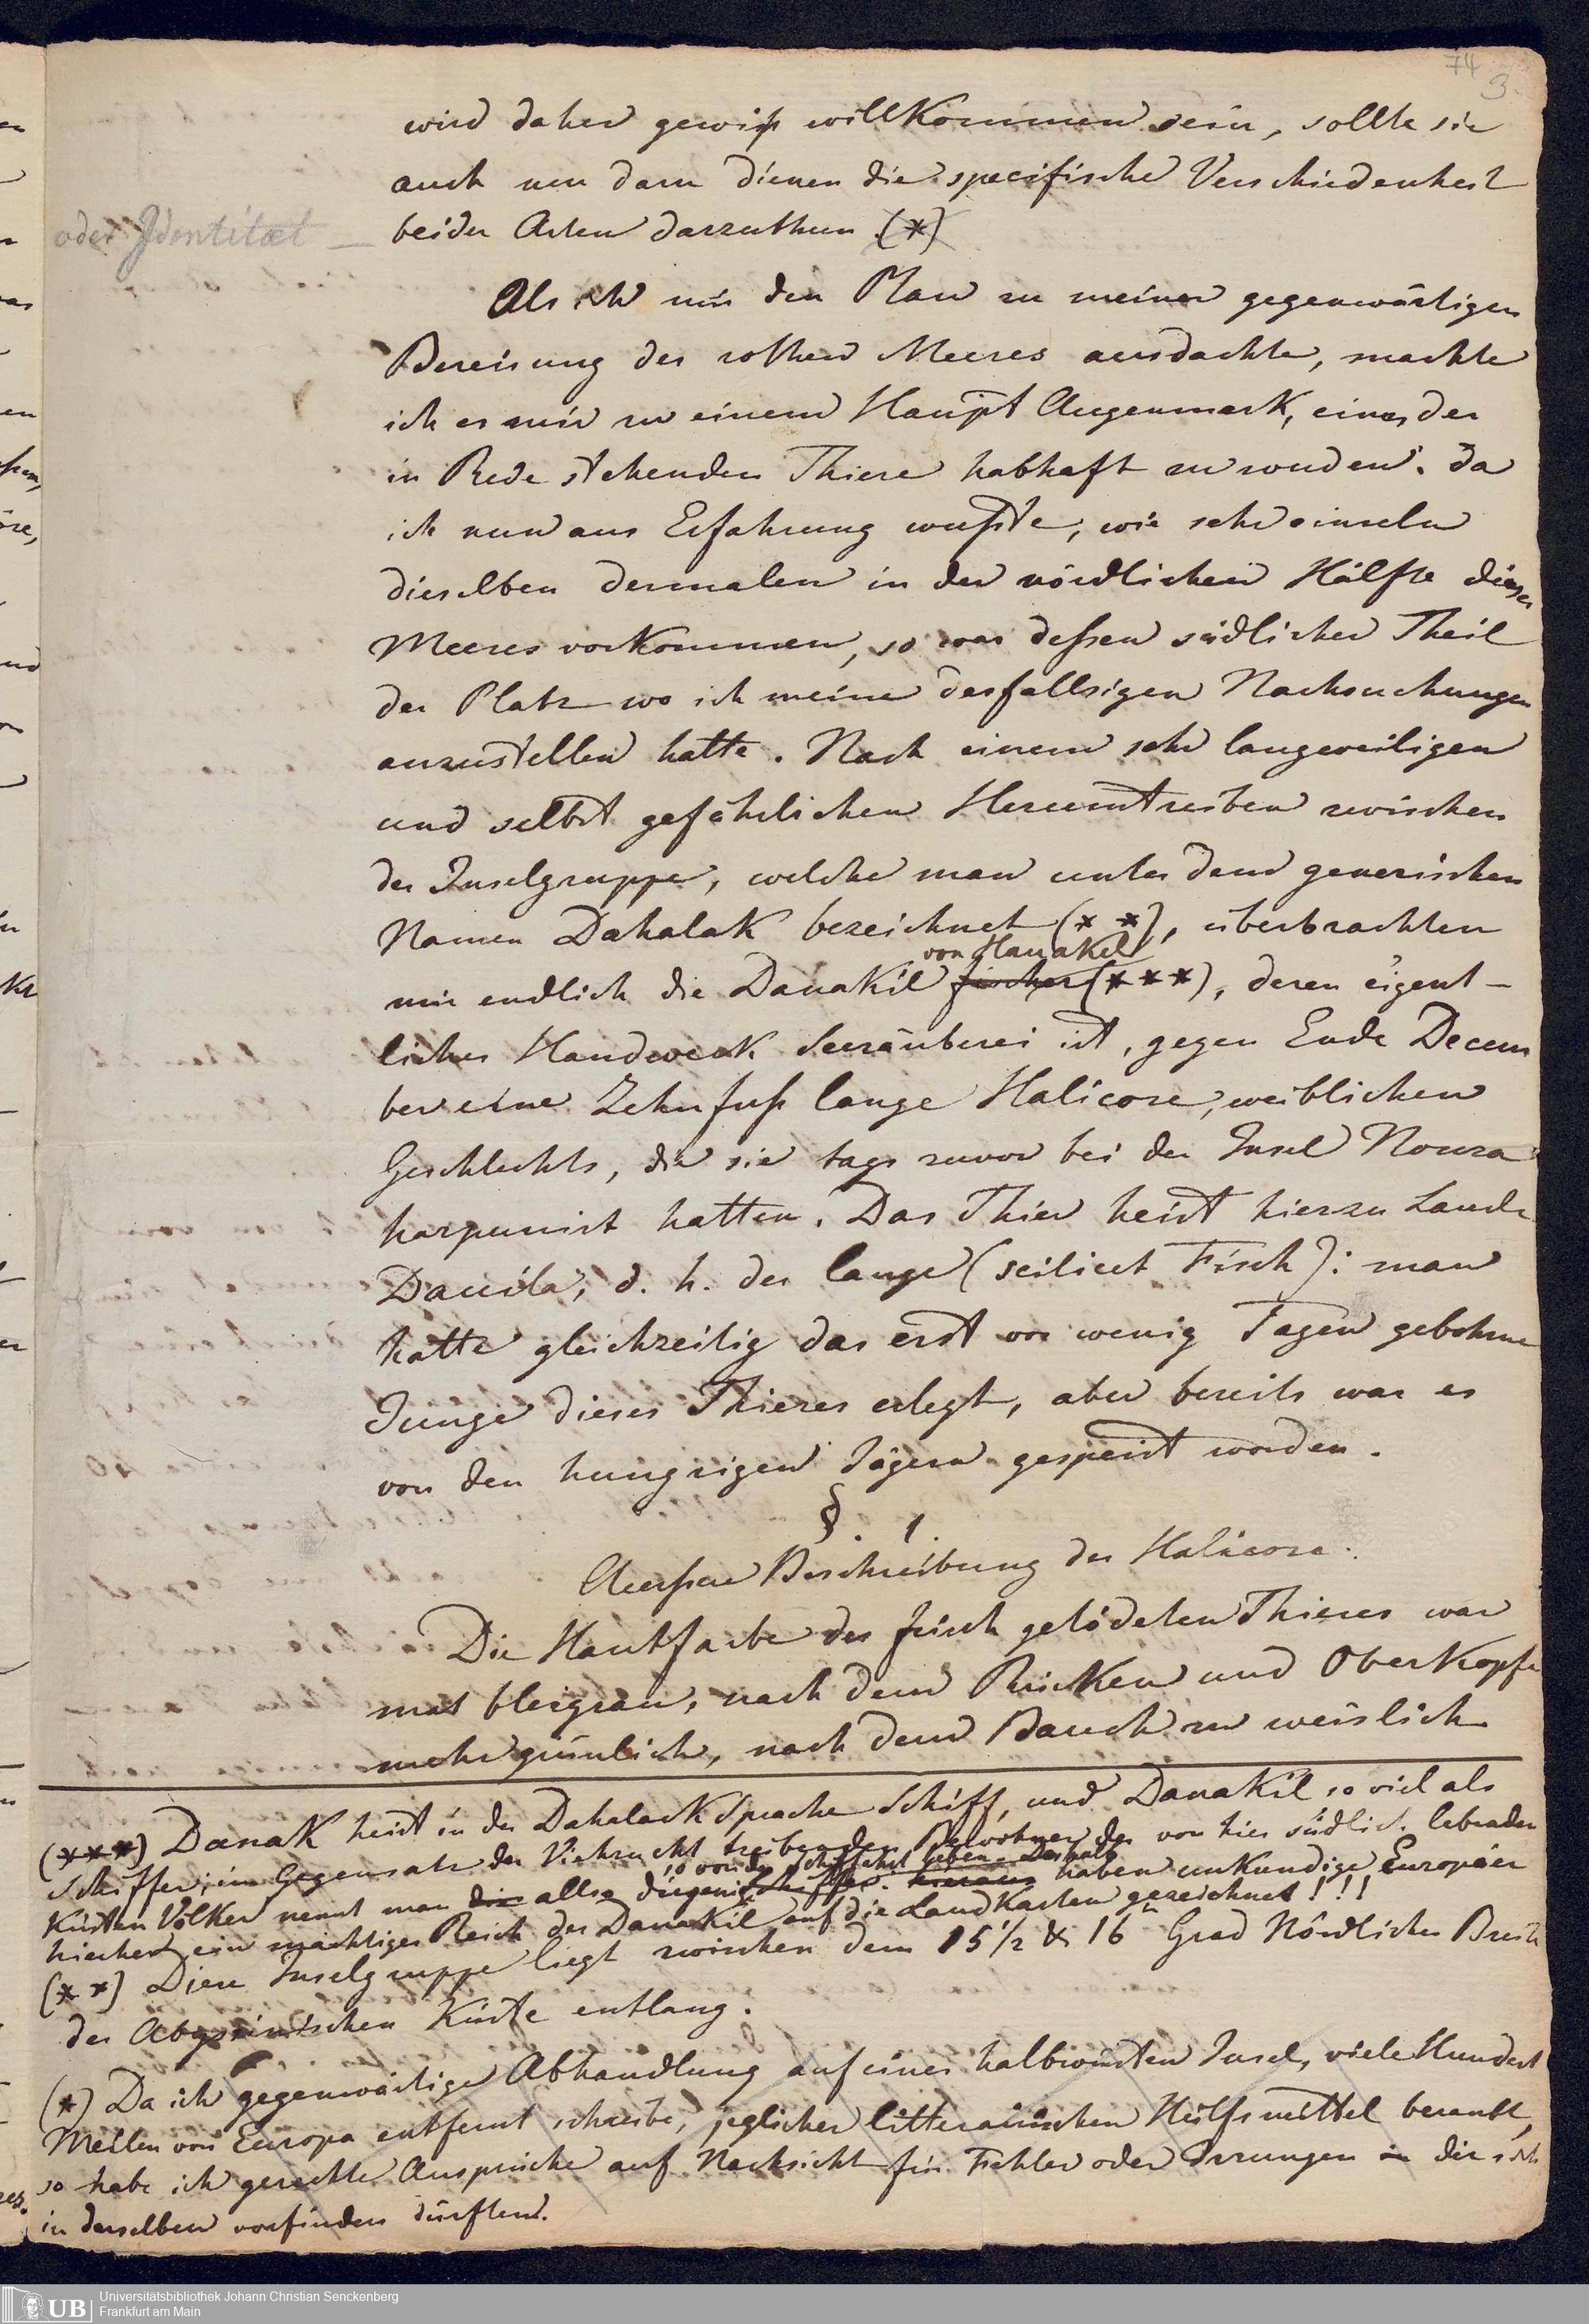 74
3.
wird daher gewiß willkommen sein, sollte sie
auch nur dazu dienen die specifische Verschiedenheit
oder Identitæt
beider Arten darzuthun (*)
Als ich mir den Plan zu meiner gegenwärtigen
Bereisung des rothen Meeres ausdachte, machte
ich es mir zu einem Haupt Augenmerk, eines der
in Rede stehenden Thiere habhaft zu werden. Da
ich nun aus Erfahrung wußte, wie sehr einzeln
dieselben dermalen in der nördlichen Hälfte dieses
Meeres vorkommen, so war deßen südlicher Theil
der Platz wo ich meine desfallsigen Nachsuchungen
anzustellen hatte. Nach einem sehr langweiligen
und selbst gefährlichen Herumtreiben zwischen
der Inselgruppe, welche man unter dem generischen
Namen Dahalak bezeichnet (**), überbrachten
von Hauakel
mir endlich die Danakil fischer (***), deren eigent-
liches Handwerk Seeräuberei ist, gegen Ende Decem
ber eine Zehn fuß lange Halicore, weiblichen
Geschlechts, die sie tags zuvor bei der Insel Noura
harpunirt hatten. Das Thier heist hierzu Lande
Dauila, d. h. der lange (scilicet Fisch): man
hatte gleichzeitig das erst vor wenig Tagen gebohrne
Junge dieses Thieres erlegt, aber bereits war es
von den hungrigen Jägern gespeist worden.
§. 1.
Aeußere Beschreibung der Halicore.
Die Hautfarbe des frisch getödeten Thieres war
mat bleigrau, nach dem Rücken und Oberkopfe
mehr grünlich, nach dem Bauch zu weislich
(***) Danak heist in der Dahalack Sprache Schiff, und Danakil so viel als
Schiffer; im Gegensatz der Viehzucht treibenden Bewohner der von hier südlich lebenden
so von der Schiffahrt leben. Deshalb
Küsten Völker nennt man die allso diejenige Schiffer. hieraus haben unkundige Europäer
hierher ein mächtiges Reich der Danakil auf die Landkarten gezeichnet!!!
(**) Diese Inselgruppe liegt zwischen dem 15 1/2 & 16 Grad Nördlicher Breite
der Abyssinischen Küste entlang.
(*) Da ich gegenwärtige Abhandlung auf einer halbwüsten Insel, viele Hundert
Meilen von Europa entfernt schreibe, jeglicher litterairischen Hülfsmittel beraubt,
so habe ich gerechte Ansprüche auf Nachsicht für Fehler oder Irrungen in die sich
in derselben vorfinden dürften.
UB
Universitätsbibliothek Johann Christian Senckenberg
Frankfurt am Main